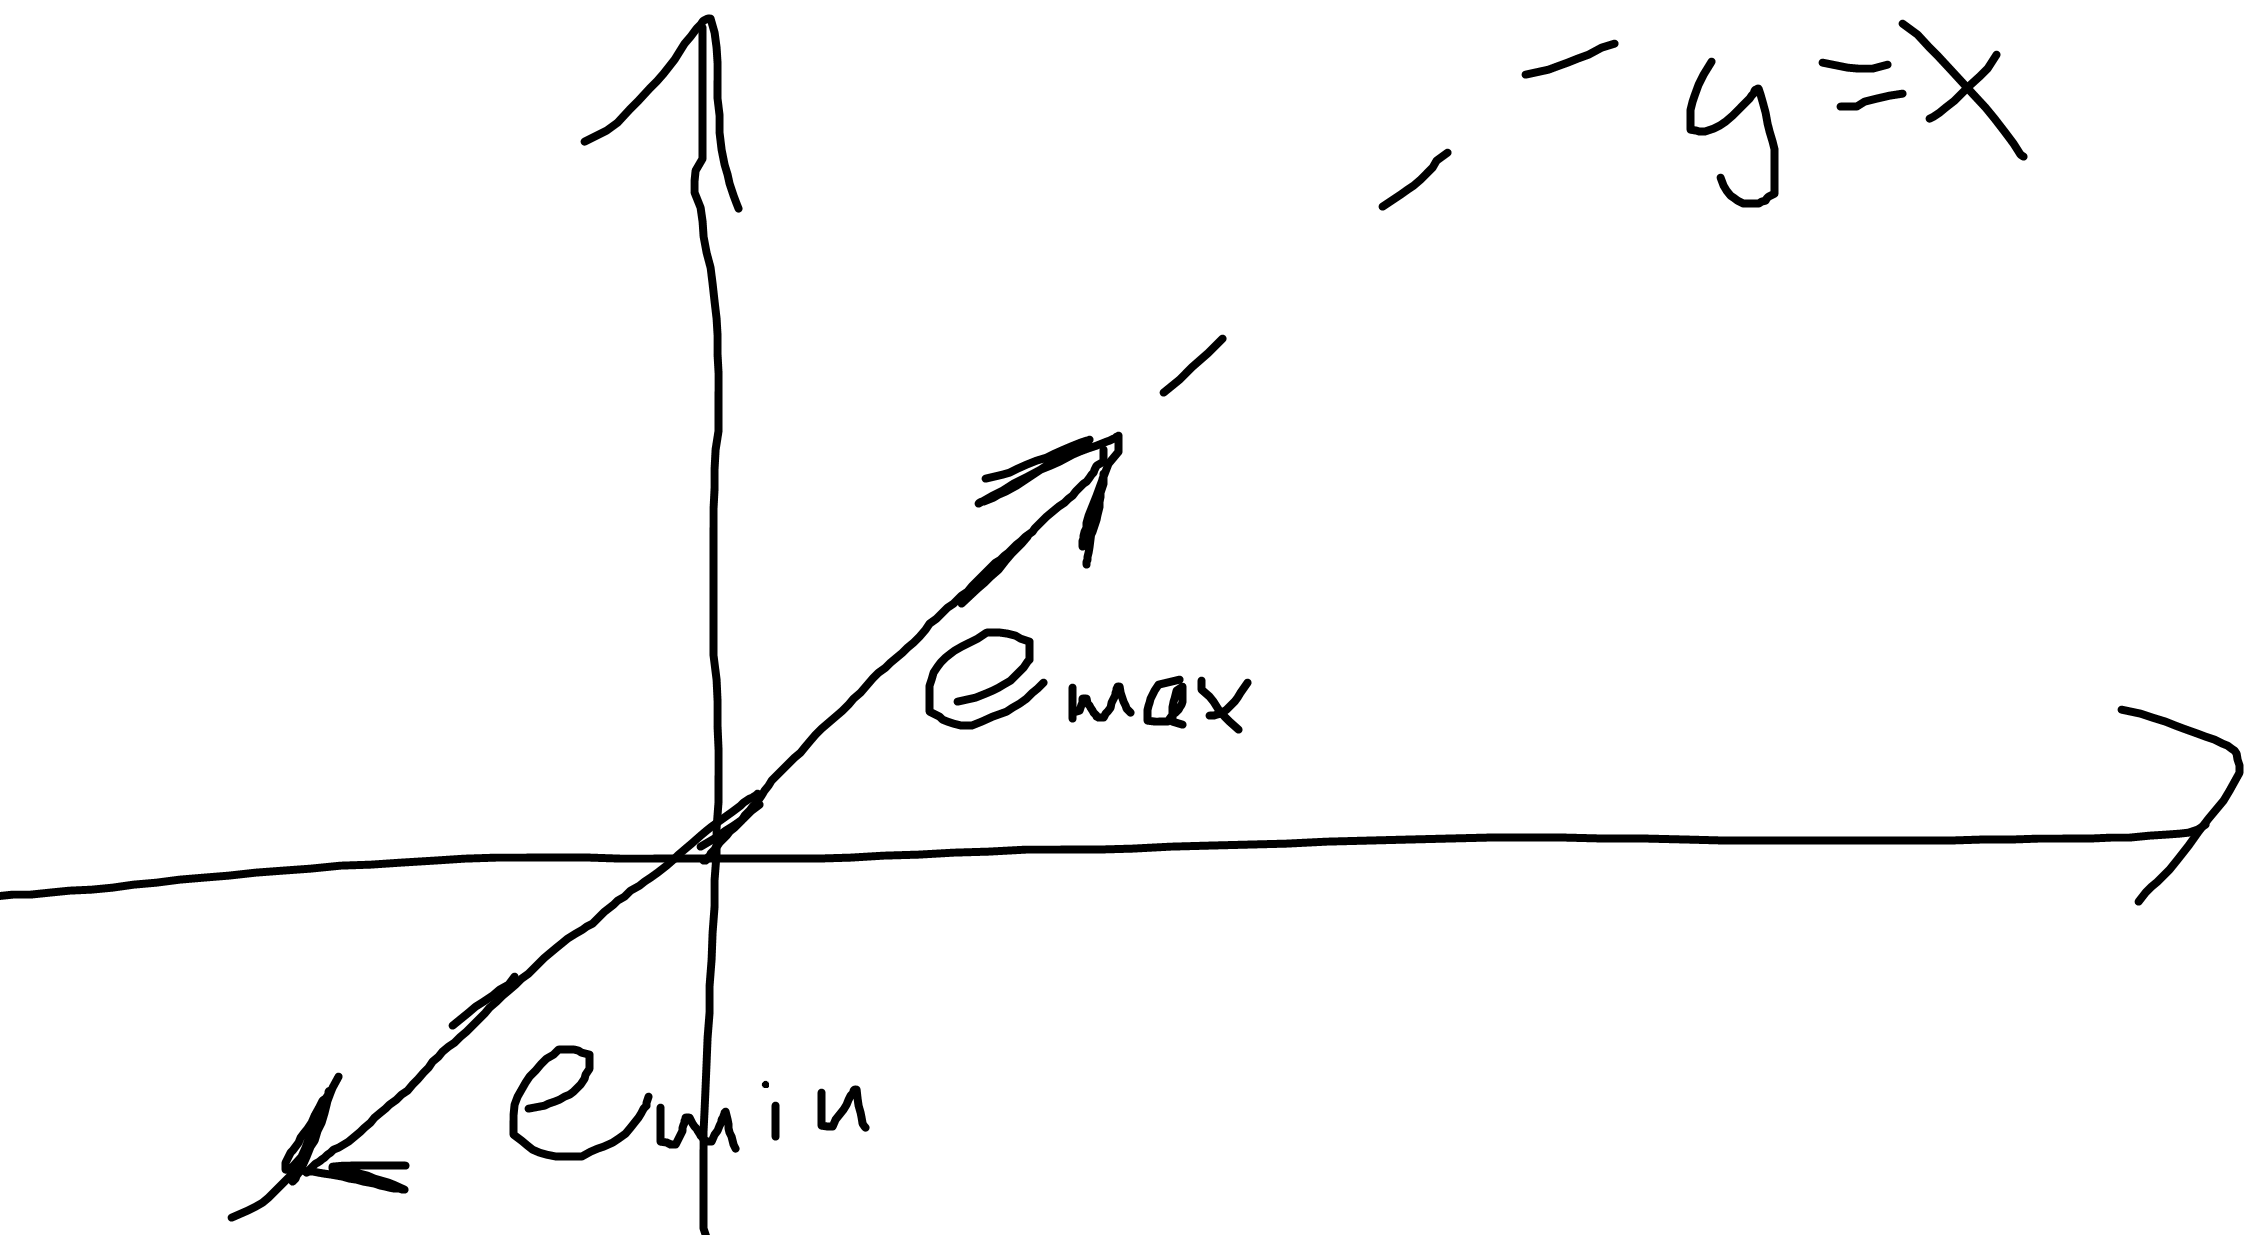 y=x
e max
e min